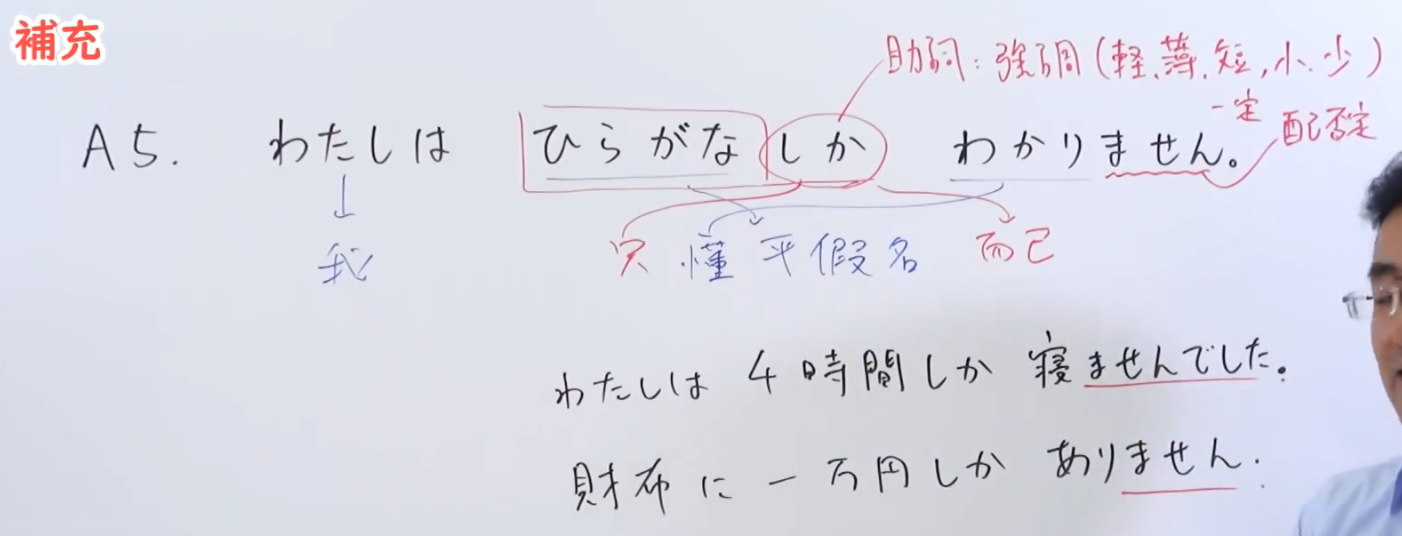 補充
助詞:強調(軽、薄、短、小、少)
A5. わたしは ひらがなしか わかりません。
一定 配否定
我 只 懂 平假名 而已
わたしは 4時間しか 寝ませんでした。
財布に一万円しか ありません.